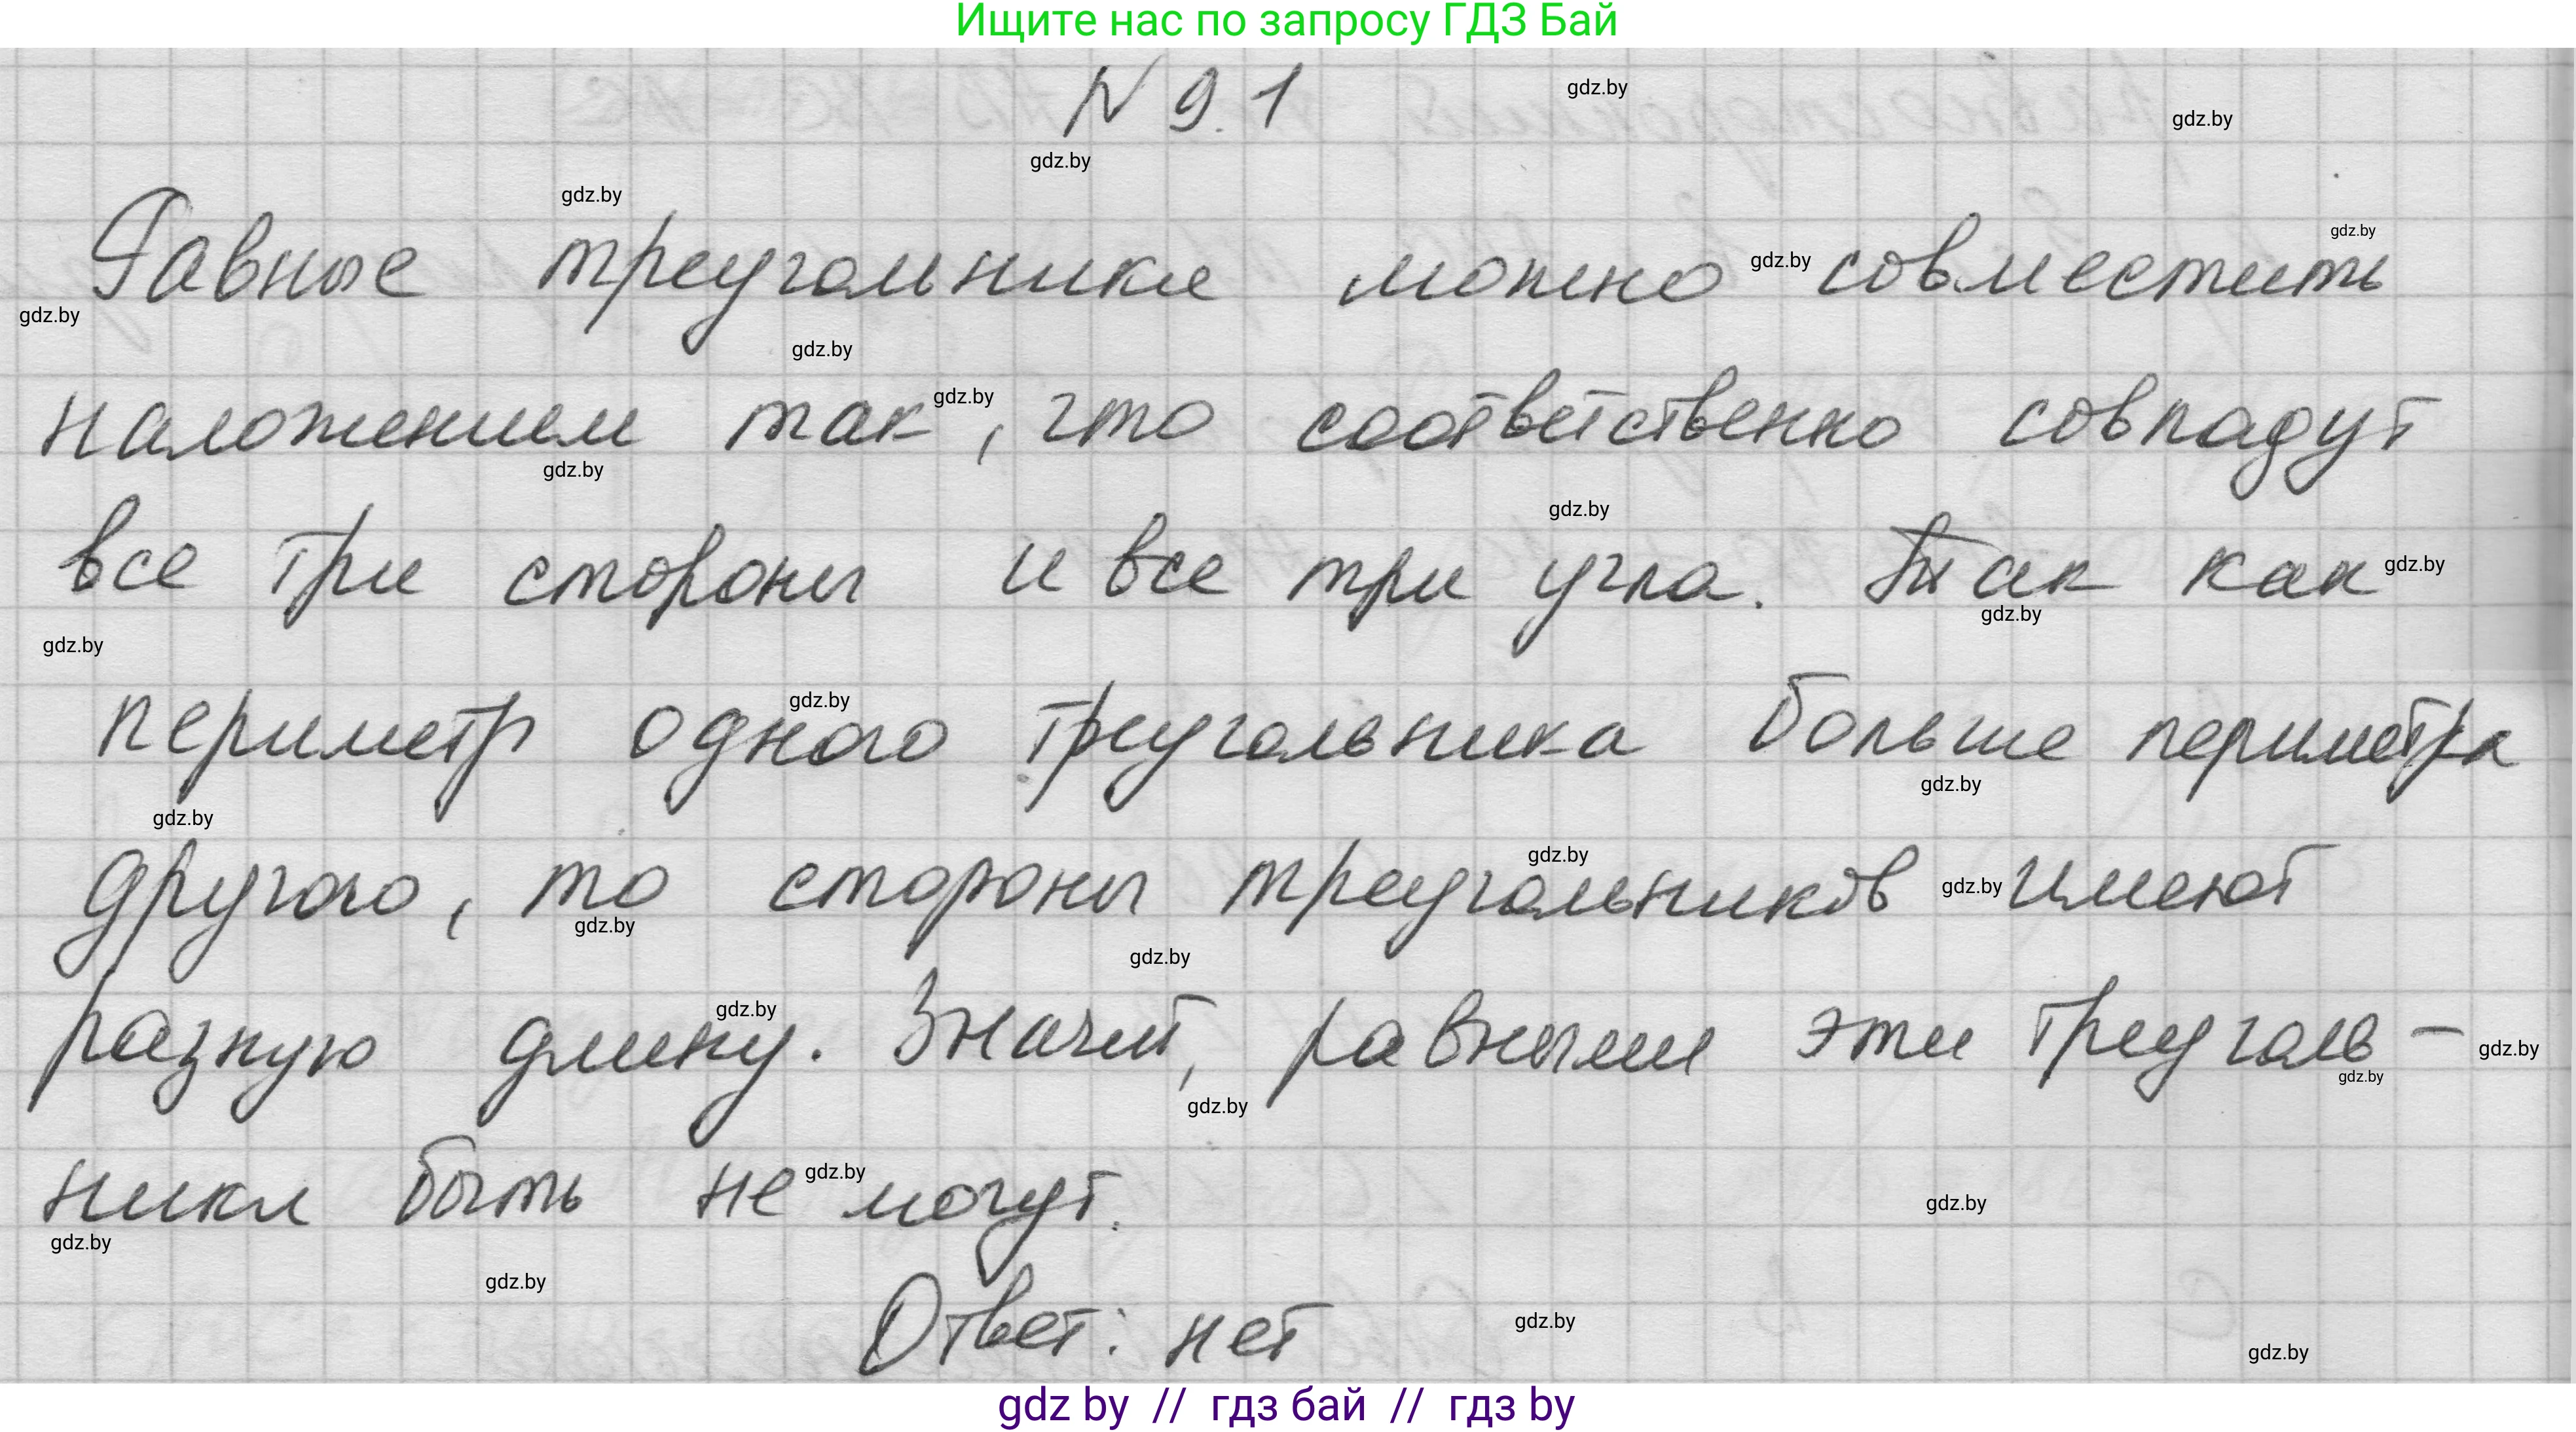 Ищите нас по запросу ГДЗ Бай
N 9.1
gdz.by
gdz.by
gdz.by
gdz.by
Равные треугольники можно совместить
gdz.by
gdz.by
gdz.by
gdz.by
наложением так, что соответственно совпадут
gdz.by
gdz.by
gdz.by
все три стороны и все три угла. Так как
gdz.by
gdz.by
gdz.by
периметр одного треугольника больше периметра
gdz.by
gdz.by
gdz.by
другого, то стороны треугольников имеют
gdz.by
gdz.by
gdz.by
gdz.by
разную длину. Значит, равными эти треуголь-
gdz.by
gdz.by
gdz.by
gdz.by
ники быть не могут.
gdz.by
gdz.by
gdz.by
gdz.by
Ответ: нет
gdz.by
gdz.by
gdz by // гдз бай // гдз by